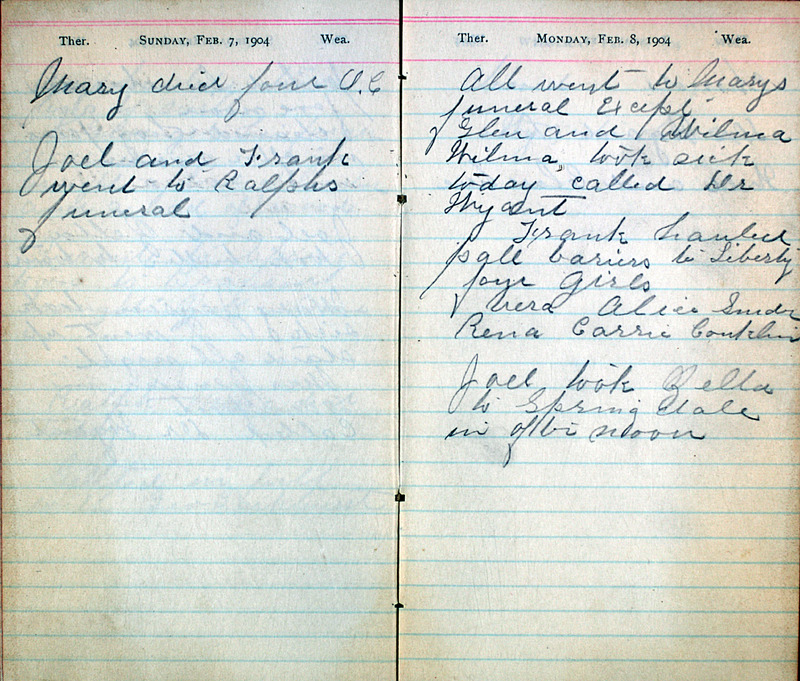 Ther. SUNDAY, FEB. 7, 1904 Wea.
Mary died four O.C
Joel and Frank
went to Ralphs
funeral
Ther. MONDAY, FEB. 8, 1904 Wea.
All went to Marys
funeral Except
Glen and Wilma
Wilma, took sick
today, called Dr
Wyant
Frank hauled
pall bariers to Liberty
four Girls
Vera Alice Snider
Rena Carrie Conklin
Joel took Zella
to Spring dale
in after noon